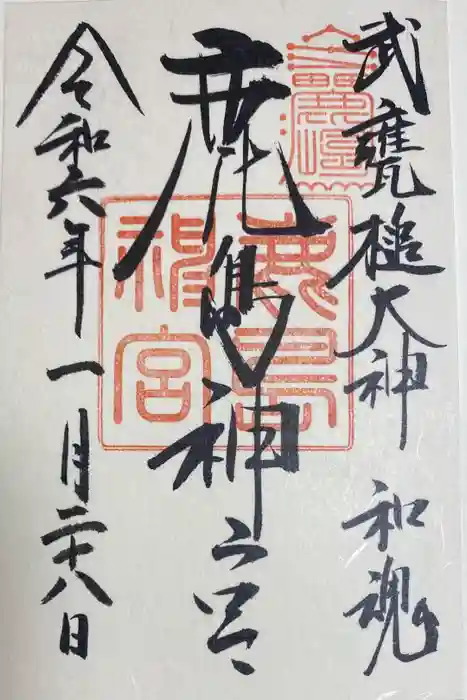 武甕槌大神　和魂
鹿嶋神宮
鹿島神宮
令和六年一月二十八日